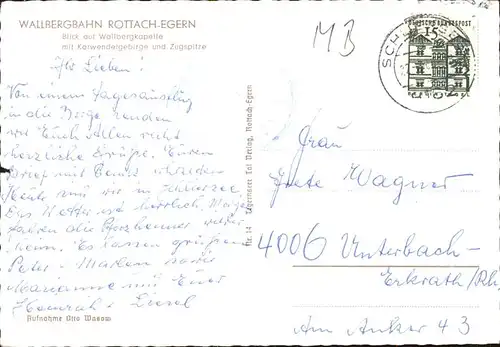 WALLBERGBAHN ROTTACH-EGERN
Blick auf Wallbergkapelle
mit Karwendelgebirge und Zugspitze
MB
DEUTSCHE BUNDESPOST
15
SCHL
Ihr Lieben!
Von einem Tagesausflug
in die Berge senden
wir Euch allen recht
herzliche Grüße. Euren
Brief mit
Heute sind wir im
Das Wetter ist herrlich. Morgen
fahren die Pforzheimer wieder
heim. Es lassen grüßen
Peter, Marlen sowie
Marianne mit Euer
Heinrich + Liesel
Aufnahme Otto Wasow
Nr. 14 Tegernseer Tal Verlag, Rottach-Egern
Frau
Grete Wagner
4006 Unterbach-
Erkrath/Rh.
Am Anker 43